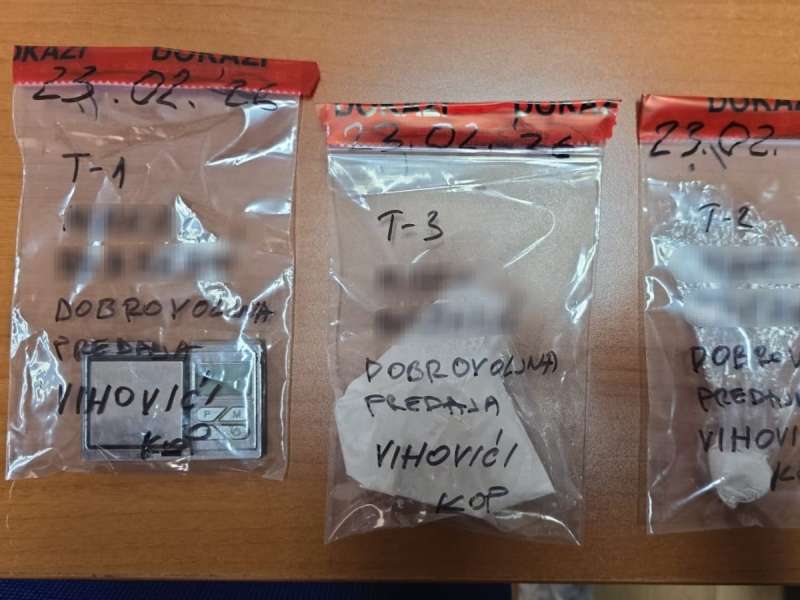 DOKAZI DOKAZI
23.02.26
T-1
DOBROVOLJNA
PREDAJA
VIHOVIĆI
KOP
P M
DOKAZI DOKAZI
23.02.26
T-3
DOBROVOLJNA
PREDAJA
VIHOVIĆI
KOP
DOKAZ
23.02.
T-2
DOBROV
PREDAJA
VIHOVIĆI
KOP